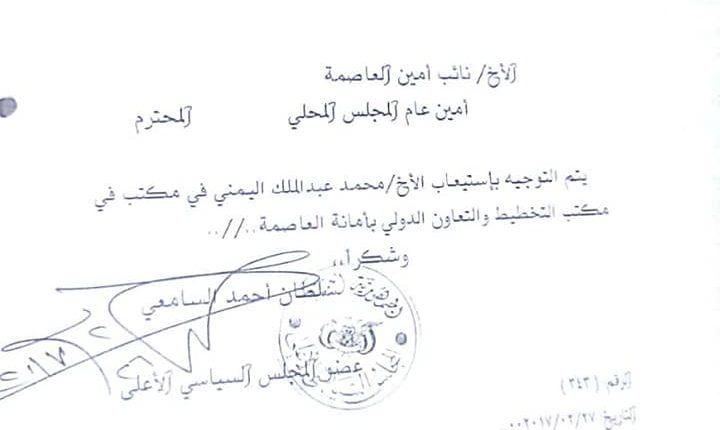 الأخ/ نائب أمين العاصمة
أمين عام المجلس المحلي المحترم
يتم التوجيه بإستيعاب الأخ/محمد عبدالملك اليمني في مكتب في
مكتب التخطيط والتعاون الدولي بأمانة العاصمة..//..
وشكراً،،
سلطان أحمد السامعي
عضو المجلس السياسي الأعلى
الرقم (٣٤٣)
التاريخ ٢٠١٧/٠٢/٢٧